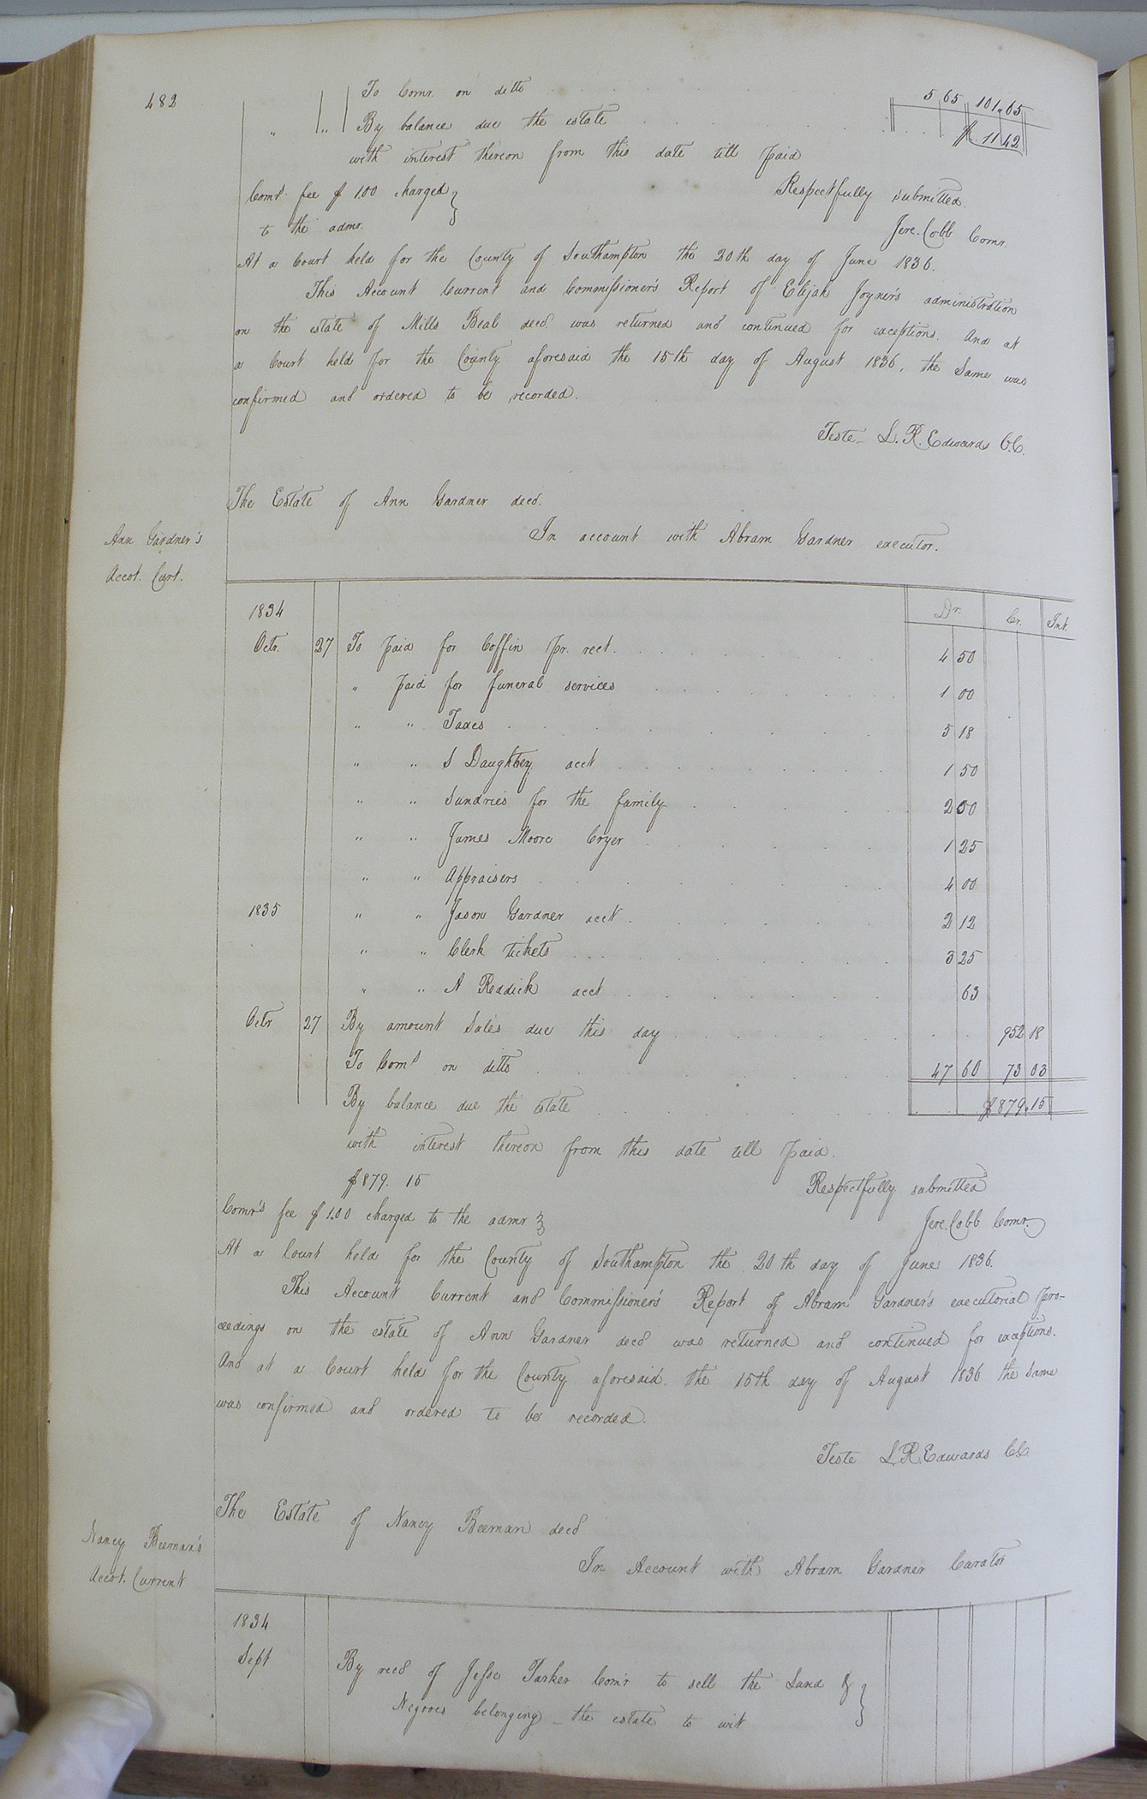 482
To Comr. on ditto 5 65 101.65
" " By balance due the estate $ 11 42
with interest thereon from this date till paid
Comrs. fee $ 1.00 charged }
to the admr.
Respectfully submitted
Jere. Cobb Comr.
At a Court held for the County of Southampton the 20th day of June 1836.
This Account Current and Commissioner's Report of Elijah Joyner's administration
on the estate of Mills Beal decd was returned and continued for exceptions. And at
a Court held for the County aforesaid the 15th day of August 1836, the Same was
confirmed and ordered to be recorded.
Teste - L. R. Edwards C.C.
The Estate of Ann Gardner decd.
In account with Abram Gardner executor.
Ann Gardner's
Accot. Curt.
Dr. Cr. Int.
1834
Octr. 27 To paid for Coffin pr. rect. 4 50
" paid for funeral services 1 00
" " Taxes 5 18
" " S Daughtrey acct 1 50
" " Sundries for the family 2 50
" " James Moore Cryer 1 25
" " Appraisers 4 00
1835 " " Jason Gardner acct 2 12
" " Clerk tickets 3 25
" " A Reddick acct 63
Octr 27 By amount Sales due this day 952 18
To Coms on ditto 47 60 73 03
By balance due the estate $879.15
with interest thereon from this date till paid.
$879. 15
Respectfully submitted
Comr's fee $ 1.00 charged to the admr }
Jere. Cobb Comr.
At a Court held for the County of Southampton the 20th day of June 1836.
This Account Current and Commissioner's Report of Abram Gardner's executorial pro-
ceedings on the estate of Ann Gardner decd was returned and continued for exceptions.
And at a Court held for the County aforesaid. the 15th day of August 1836 the Same
was confirmed and ordered to be recorded.
Teste L. R. Edwards C.C.
The Estate of Nancy Beeman decd
In Account with Abram Gardner Curator
Nancy Beeman's
Accot. Current
1834
Sept By recd of Jesse Parker Comr to sell the Land & }
Negroes belonging - the estate to wit